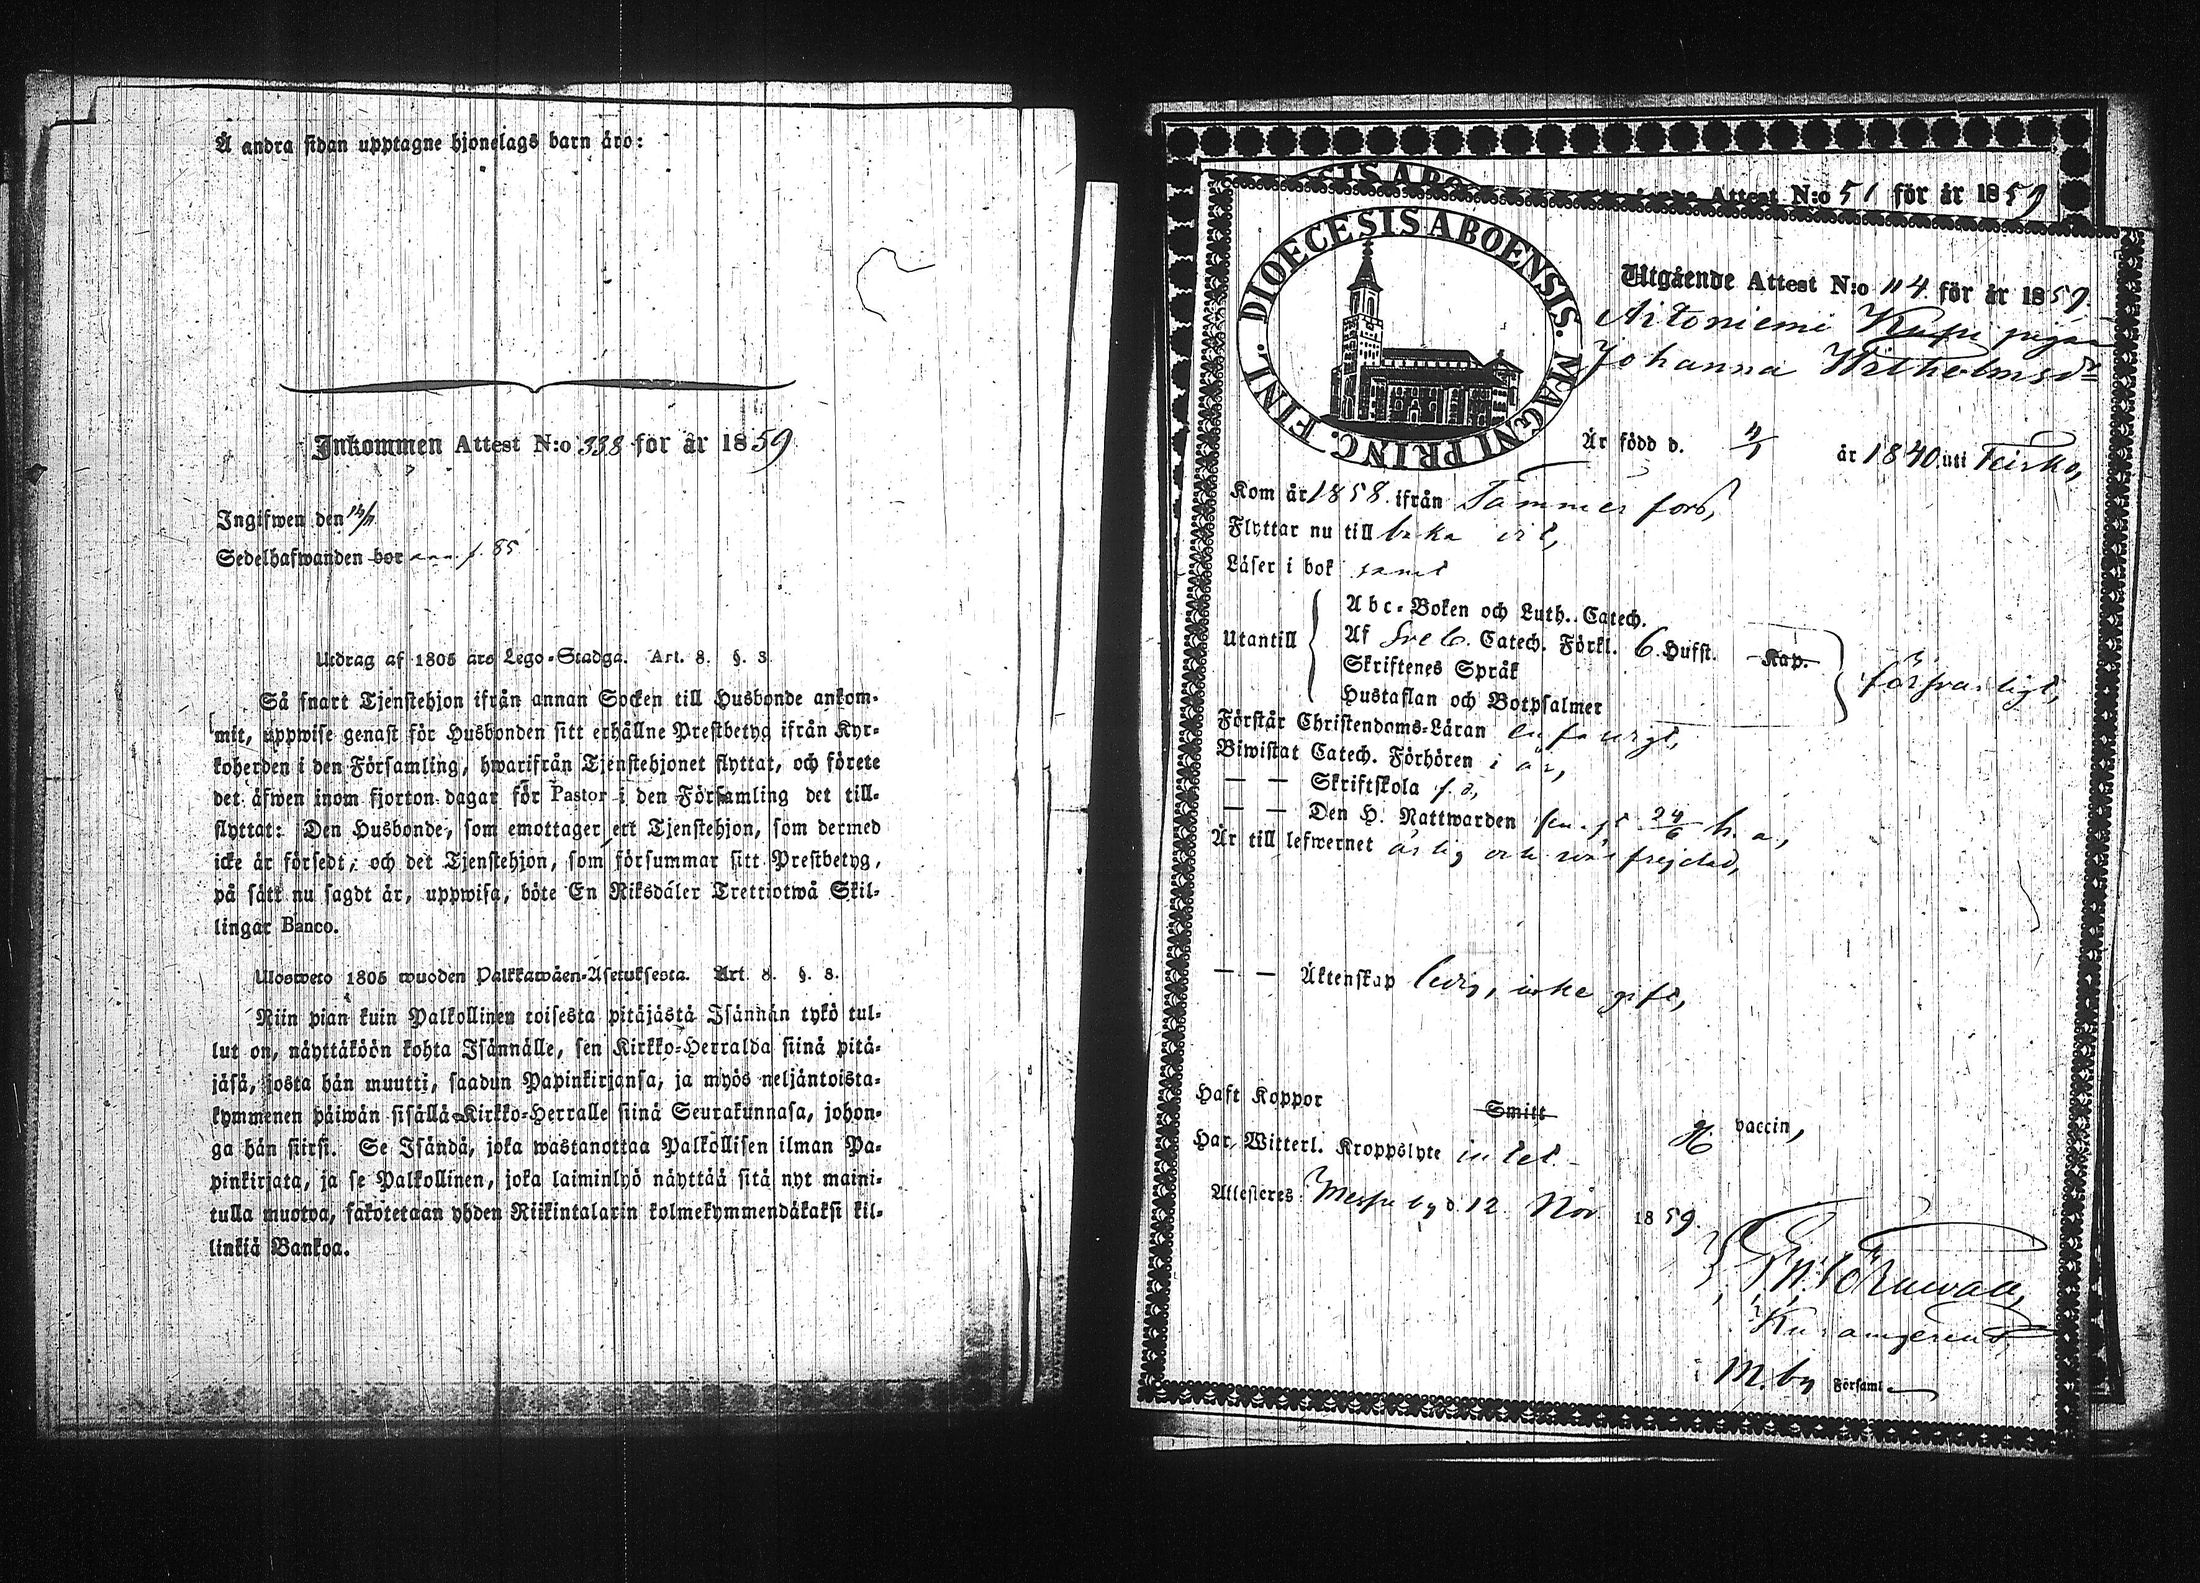 Å andra sidan upptagne hjonelags barn äro:
Inkommen Attest N:o 338 för år 1859
Ingifwen den 14/11
Sedelhafwanden bor
Utdrag af 1805 års Lego-Stadga. Art. 8. §. 3.
Så snart Tjenstehjon ifrån annan Socken till Husbonde ankom-
mit, uppwise genast för Husbonden sitt erhållne Prestbetyg ifrån Kyr-
koherden i den Församling, hwarifrån Tjenstehjonet flyttat, och förete
det äfwen inom fjorton dagar för Pastor i den Församling det till-
flyttat: Den Husbonde, som emottager ett Tjenstehjon, som dermed
icke är försedt, och det Tjenstehjon, som försummar sitt Prestbetyg,
på sätt nu sagdt är, uppwisa, böte En Riksdaler Trettiotwå Skil-
lingar Banco.
Ulosweto 1805 wuoden Palkkawäen-Asetuksesta. Art. 8. §. 3.
Niin pian kuin Palkollinen toisesta pitäjästä Isännän tykö tul-
lut on, näyttäköön kohta Isännälle, sen Kirkko-Herralda siinä pitä-
jäsä, josta hän muutti, saadun Papinkirjansa, ja myös neljäntoista-
kymmenen päiwän sisällä Kirkko-Herralle siinä Seurakunnasa, johon-
ga hän siirsi. Se Isändä, joka wastanottaa Palkollisen ilman Pa-
pinkirjata, ja se Palkollinen, joka laiminlyö näyttää sitä nyt maini-
tulla muotoa, sakotetaan yhden Riikintalarin kolmekymmendäkaksi kil-
linkiä Bankoa.
Attest N:o 51 för år 1859
DIOECESIS ABOENSIS. MAGNI PRINC. FINL.
Utgående Attest N:o 114 för år 1859.
Aitoniemi pigan
Johanna Wilhelmsdr
Är född d. 4/1 år 1840 uti Teisko,
Kom år 1858 ifrån Tammerfors,
Flyttar nu till baka dit,
Läser i bok samt
Utantill
Abc-Boken och Luth. Catech.
Af Sveb. Catech. Förkl. 6 Hufst. Kap.
Skriftenes Språk
Hustaflan och Botpsalmer
försvarligt,
Förstår Christendoms-Läran
Biwistat Catech. Förhören i år,
— — Skriftskola f. d.,
— — Den H. Nattwarden sen. gg 24/6 h. a.,
Är till lefwernet ärlig och wälfrejdad,
— — Äktenskap ledig, icke gift,
Haft Koppor Smitt H vaccin,
Har Witterl. Kroppslyte intet
Attesteres Messuby d. 12 Nov. 1859.
i M.by Församl.